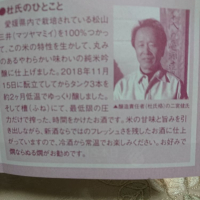 ●杜氏のひとこと
愛媛県内で栽培されている松山
三井(マツヤマミイ)を100%つかっ
て、この米の特性を生かして、丸み
のあるやわらかい味わいの純米吟
醸に仕上げました。2018年11月
15日に酛立てしてからタンク3本を
約2ヶ月低温でゆっくり醸しました。
そして槽(ふね)にて、最低限の圧
力だけで搾った、時間をかけたお酒です。米の甘味と旨みを引
き出しながら、新酒ならではのフレッシュさを残したお酒に仕上
がっていますので、冷酒から常温でお楽しみください。お好みで
燗ならぬる燗がお勧めです。
▲醸造責任者(杜氏格)の